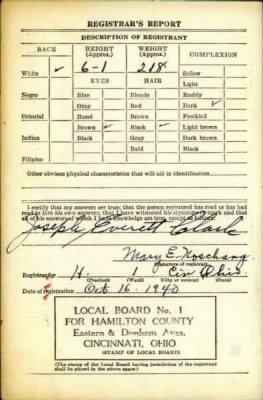 REGISTRAR'S REPORT
DESCRIPTION OF REGISTRANT
RACE HEIGHT (Approx.) WEIGHT (Approx.) COMPLEXION
White ✓ 6-1 218 Sallow
EYES HAIR Light
Negro Blue Blonde Ruddy
Gray Red Dark ✓
Oriental Hazel Brown Freckled
Brown ✓ Black ✓ Light brown
Indian Black Gray Dark brown
Bald Black
Filipino
Other obvious physical characteristics that will aid in identification
I certify that my answers are true; that the person registered has read or has had
read to him his own answers; that I have witnessed his signature or mark and that
all of his answers of which I have knowledge are true, except as follows:
Joseph Everett Clark
Mary E.
(Signature of registrar)
Registrar for H. 1 Cin Ohio
(Precinct) (Ward) (City or county) (State)
Date of registration Oct 16. 1940
LOCAL BOARD No. 1
FOR HAMILTON COUNTY
Eastern & Donham Aves.
CINCINNATI, OHIO
(STAMP OF LOCAL BOARD)
(The stamp of the Local Board having jurisdiction of the registrant
shall be placed in the above space.)